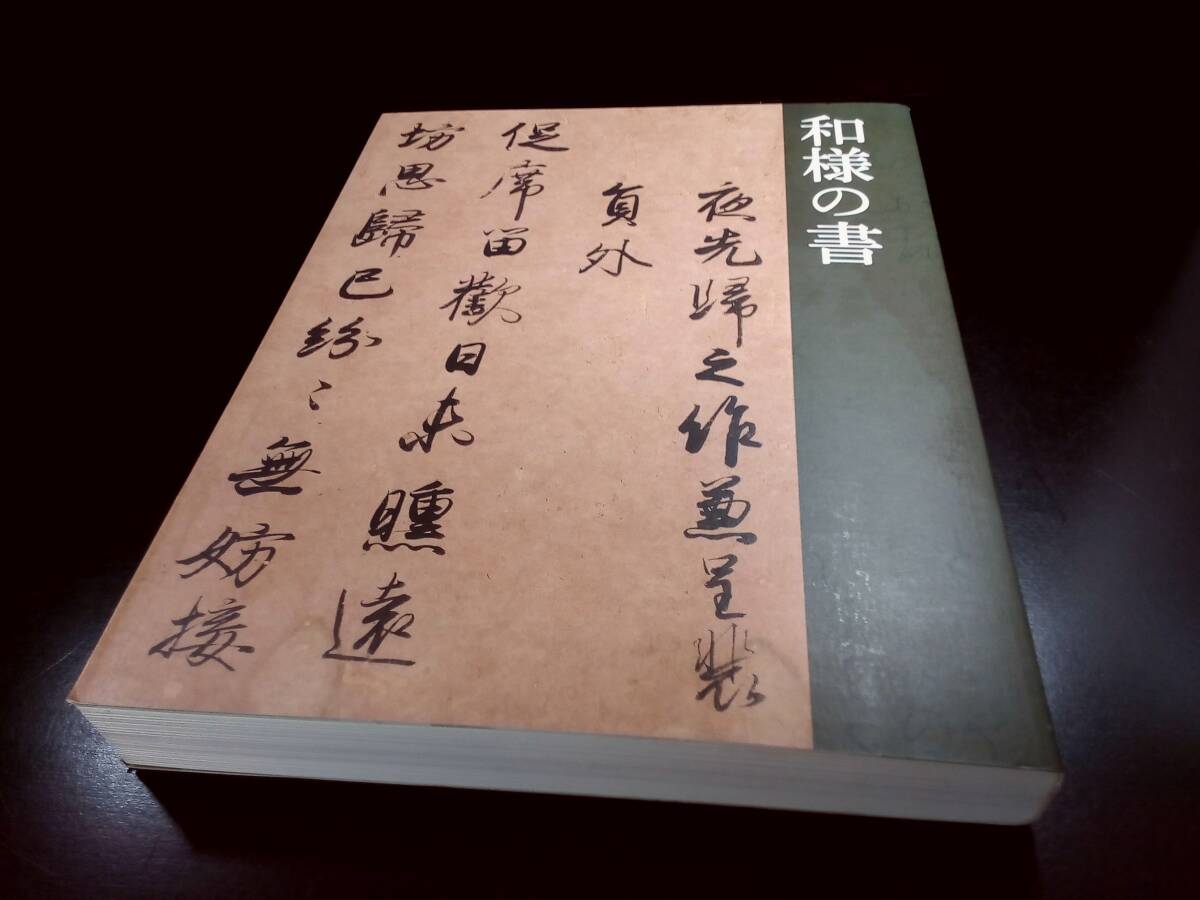 和様の書
夜先帰之作兼呈裴
員外
促席留歡日未曛遠
坊思歸已紛〻無妨接